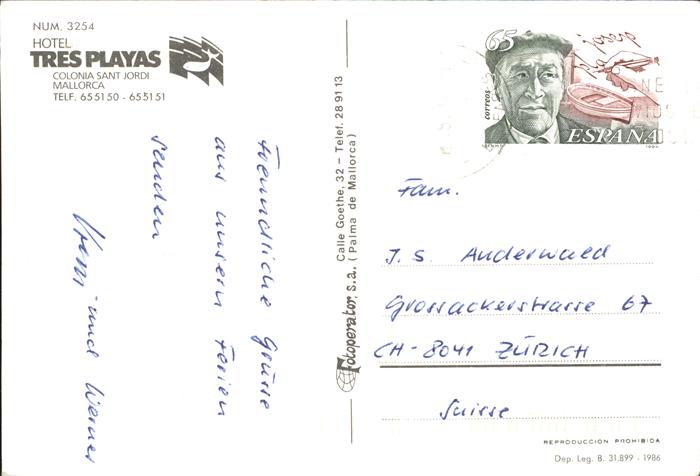 NUM. 3254
HOTEL
TRES PLAYAS
COLONIA SANT JORDI
MALLORCA
TELF. 655150 - 655151
Freundliche Grüsse
aus unsern Ferien
senden
Vreni und Werner
Fotoperator, s.a. Calle Goethe, 32 – Telef. 28 91 13
(Palma de Mallorca)
65
josep
correos
ESPAÑA
Fam.
J. S. Anderwald
Grossackerstrasse 67
CH-8041 ZÜRICH
Suisse
REPRODUCCION PROHIBIDA
Dep. Leg. B. 31.899 - 1986